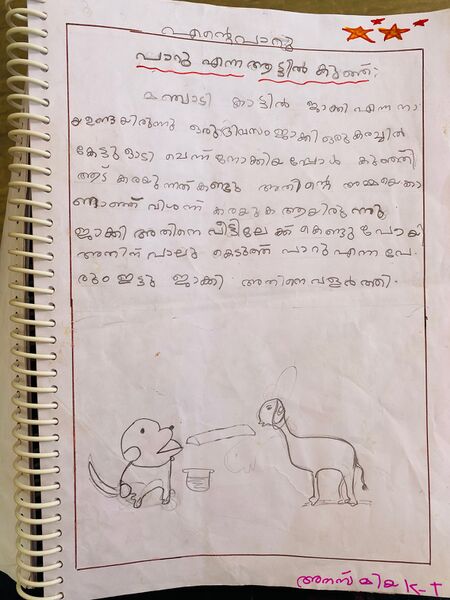 എൻ്റെ പാറു
പാറു എന്ന ആട്ടിൽ കുഞ്ഞ്.
മഞ്ചാടി കാട്ടിൽ ജാക്കി എന്ന നാ
യ ഉണ്ടയിരുന്നു ഒരുദിവസം ജാക്കി ഒരു കരച്ചിൽ
കേട്ടു ഓടി ചെന്ന് നോക്കിയപ്പോൾ കുഞ്ഞി
ആട് കരയുന്നത് കണ്ടു അതിൻ്റെ അമ്മയെകാ
ണാഞ്ഞ് വിശന്ന് കരയുക ആയിരുന്നു
ജാക്കി അതിനെ വീട്ടിലേക്ക് കൊണ്ടു പോയി
അതിന് പാലു കൊടുത്ത് പാറു എന്ന പേ
രും ഇട്ടു ജാക്കി അതിനെ വളർത്തി.
K-T